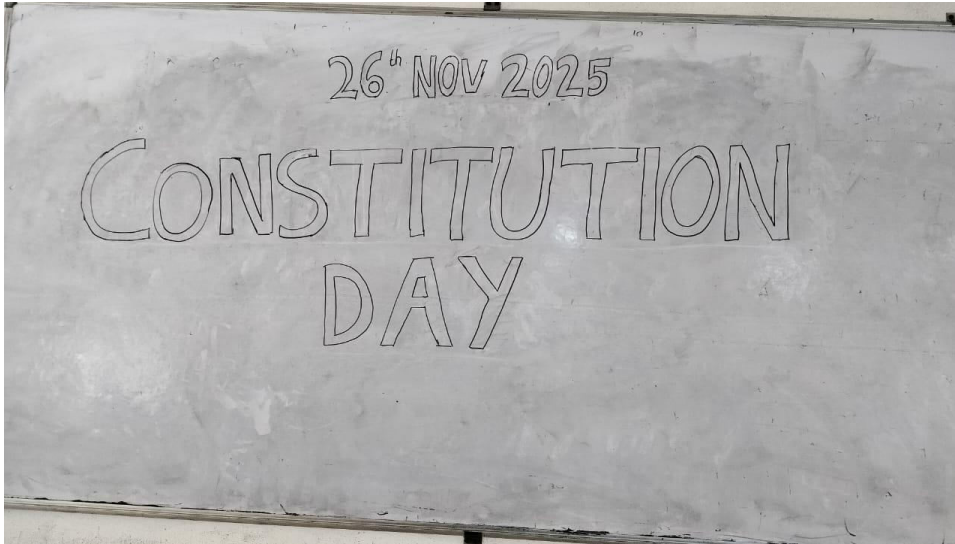 26th NOV 2025
CONSTITUTION
DAY